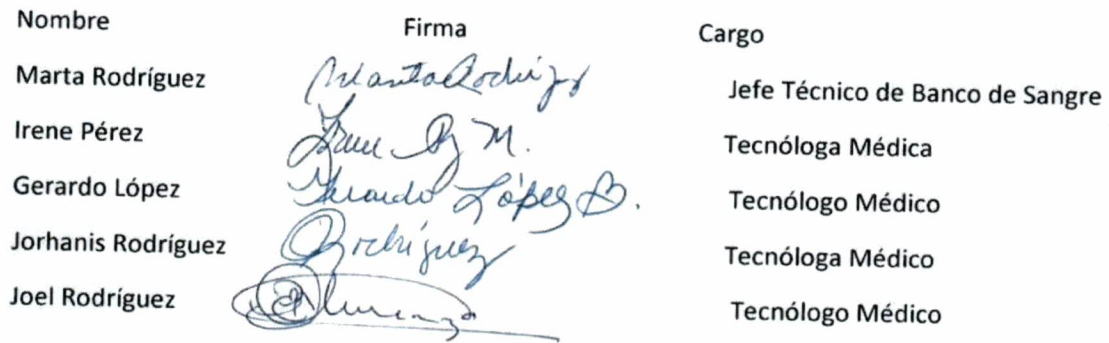 Nombre Firma Cargo
Marta Rodríguez Marta Rodríguez Jefe Técnico de Banco de Sangre
Irene Pérez M. Tecnóloga Médica
Gerardo López Gerardo López B. Tecnólogo Médico
Jorhanis Rodríguez Rodríguez Tecnóloga Médico
Joel Rodríguez Tecnólogo Médico